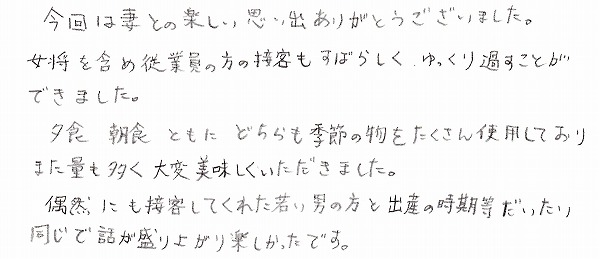 今回は妻との楽しい思い出ありがとうございました。
女将を含め従業員の方の接客もすばらしく、ゆっくり過すことが
できました。
夕食 朝食 ともに どちらも季節の物をたくさん使用しており
また量も多く 大変美味しくいただきました。
偶然にも接客してくれた若い男の方と出産の時期等だいたい
同じで話が盛り上がり楽しかったです。